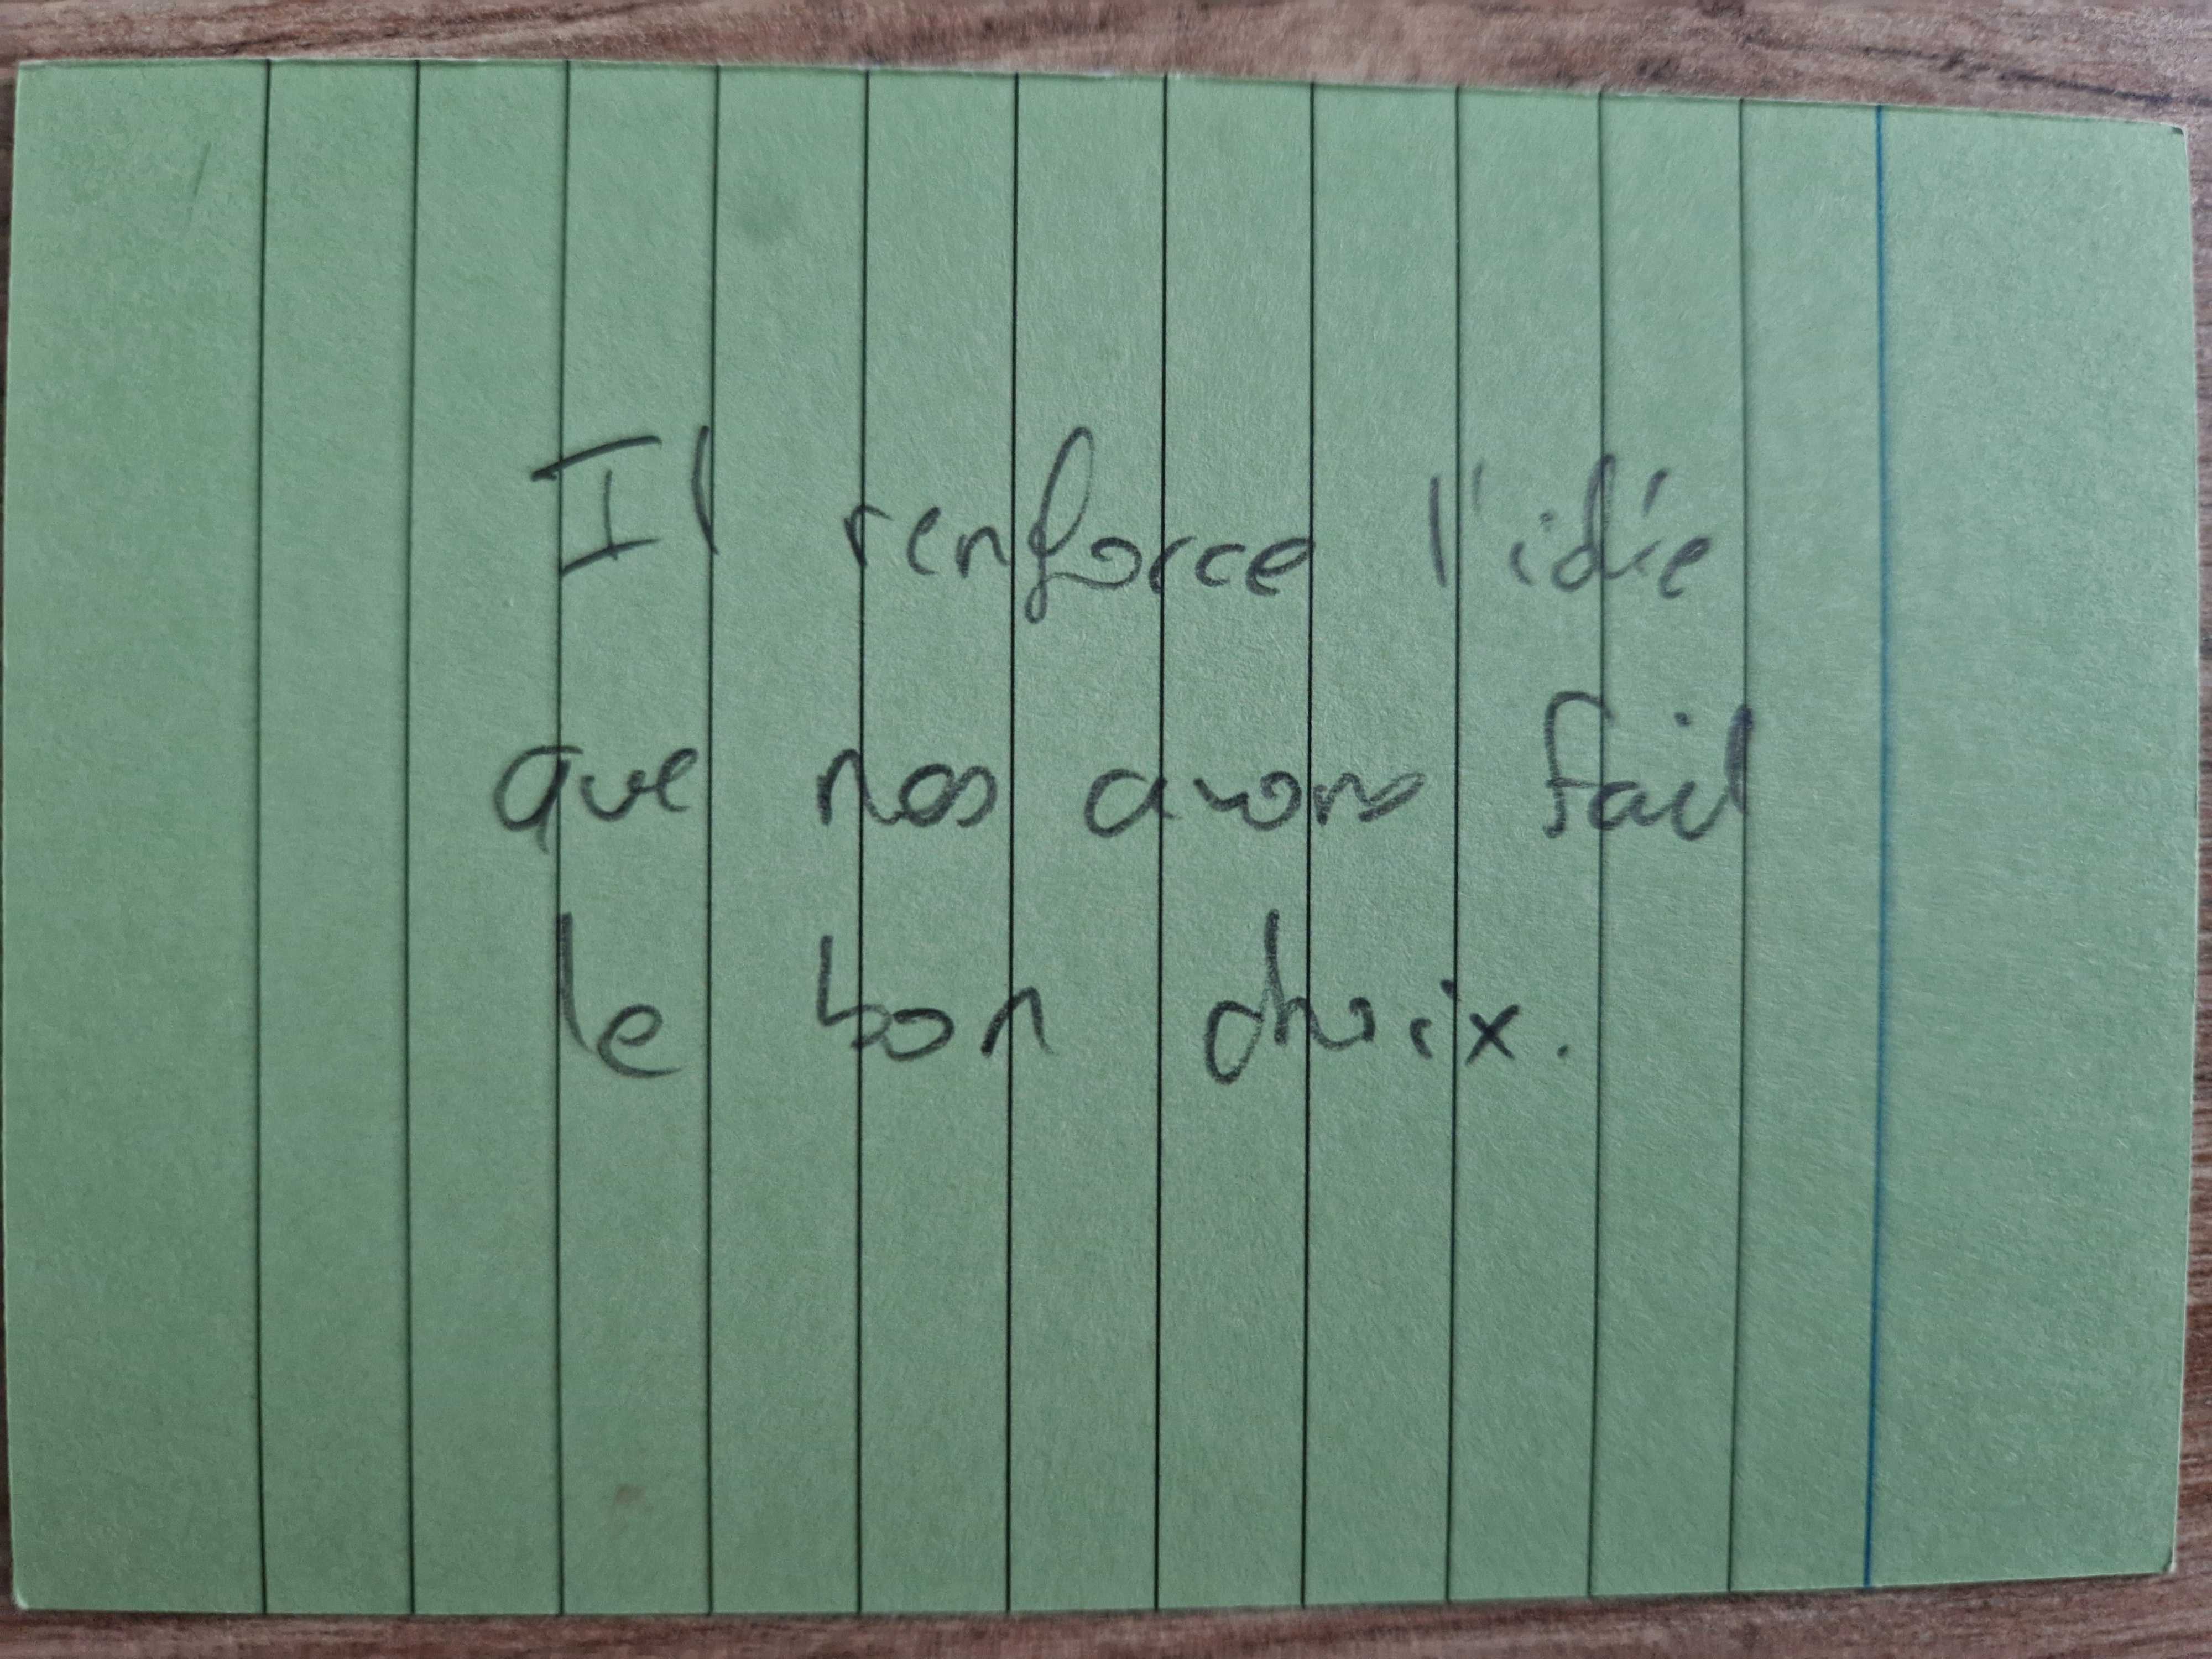 Il renforce l'idée
que nos avons fait
le bon choix.